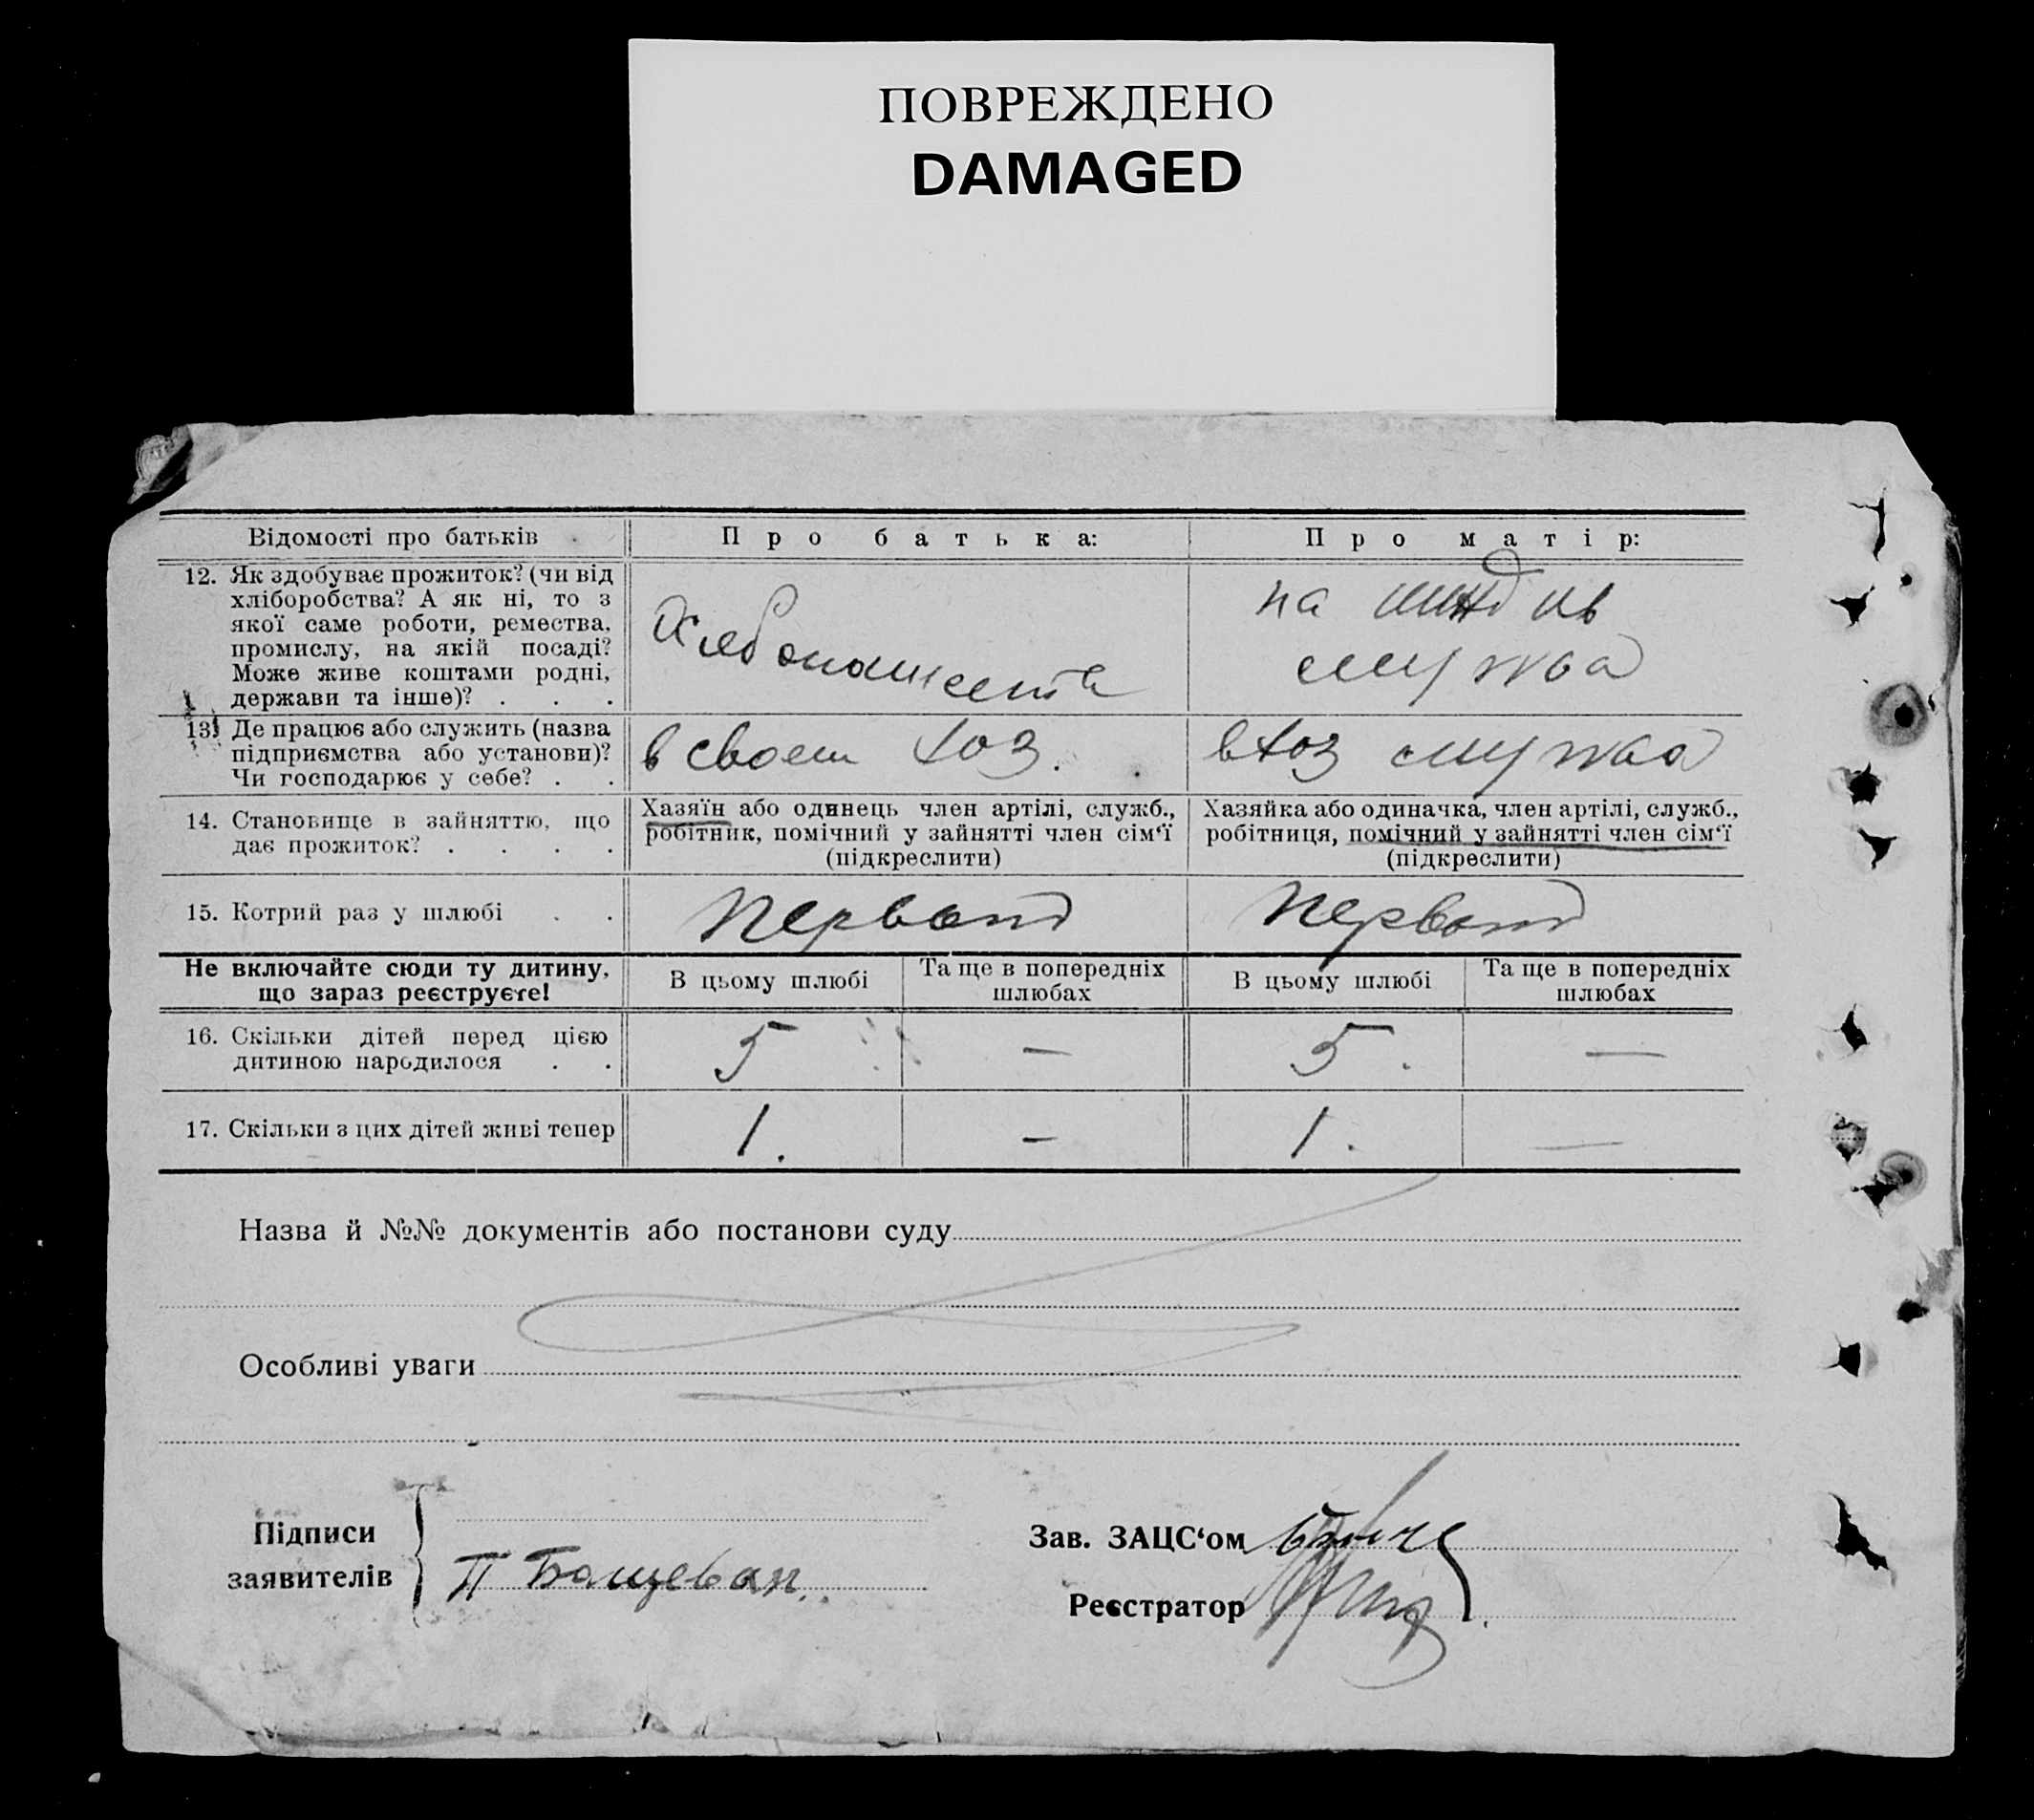 ПОВРЕЖДЕНО
DAMAGED
Відомості про батьків
Про батька:
Про матір:
12. Як здобуває прожиток? (чи від
хліборобства? А як ні, то з
якої саме роботи, ремества,
промислу, на якій посаді?
Може живе коштами родні,
держави та інше)? . . .
на
мужа
13. Де працює або служить (назва
підприємства або установи)?
Чи господарює у себе? . .
в своем хоз.
в хоз мужа
14. Становище в зайняттю, що
дає прожиток? . . . .
Хазяїн або одинець член артілі, служб.,
робітник, помічний у зайнятті член сім‘ї
(підкреслити)
Хазяйка або одиначка, член артілі, служб.,
робітниця, помічний у зайнятті член сім‘ї
(підкреслити)
15. Котрий раз у шлюбі . .
Первой
Первой
Не включайте сюди ту дитину,
що зараз реєструєте!
В цьому шлюбі
Та ще в попередніх
шлюбах
В цьому шлюбі
Та ще в попередніх
шлюбах
16. Скільки дітей перед цією
дитиною народилося . .
5 — 5. —
17. Скільки з цих дітей живі тепер
1. — 1. —
Назва й №№ документів або постанови суду
Особливі уваги
Підписи
заявителів
П Бащеван
Зав. ЗАЦС‘ом
Реєстратор